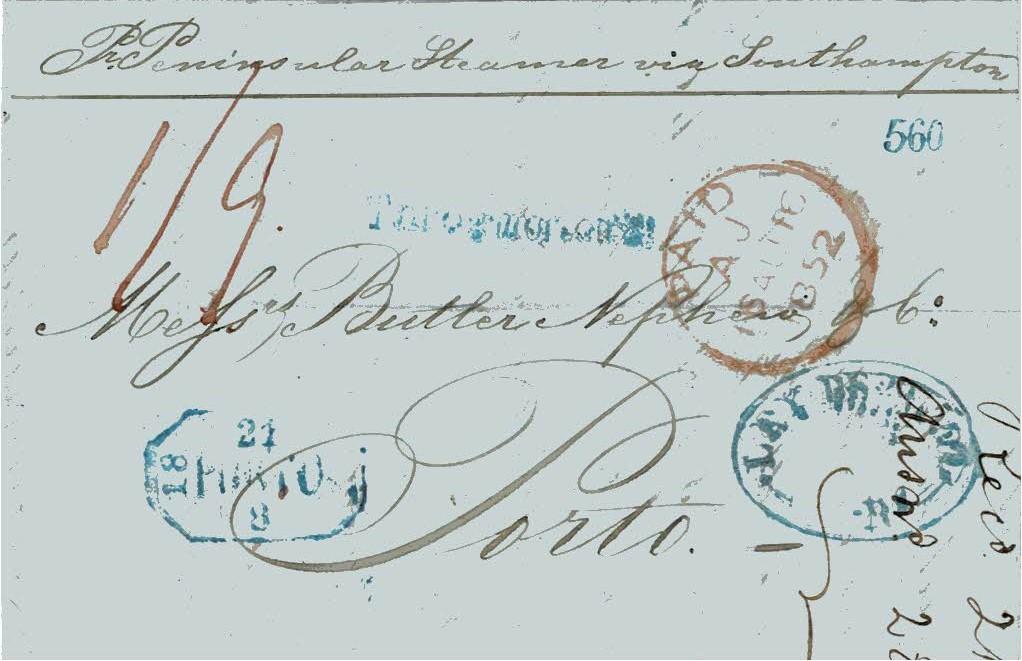 Pr. Peninsular Steamer via Southampton
560
1/9
PAID
AJ
16 AU 16
1852
Messrs, Butler Nephew & Co:
21
18 PORTO
8
Porto. —
Recd 21
Answd 2